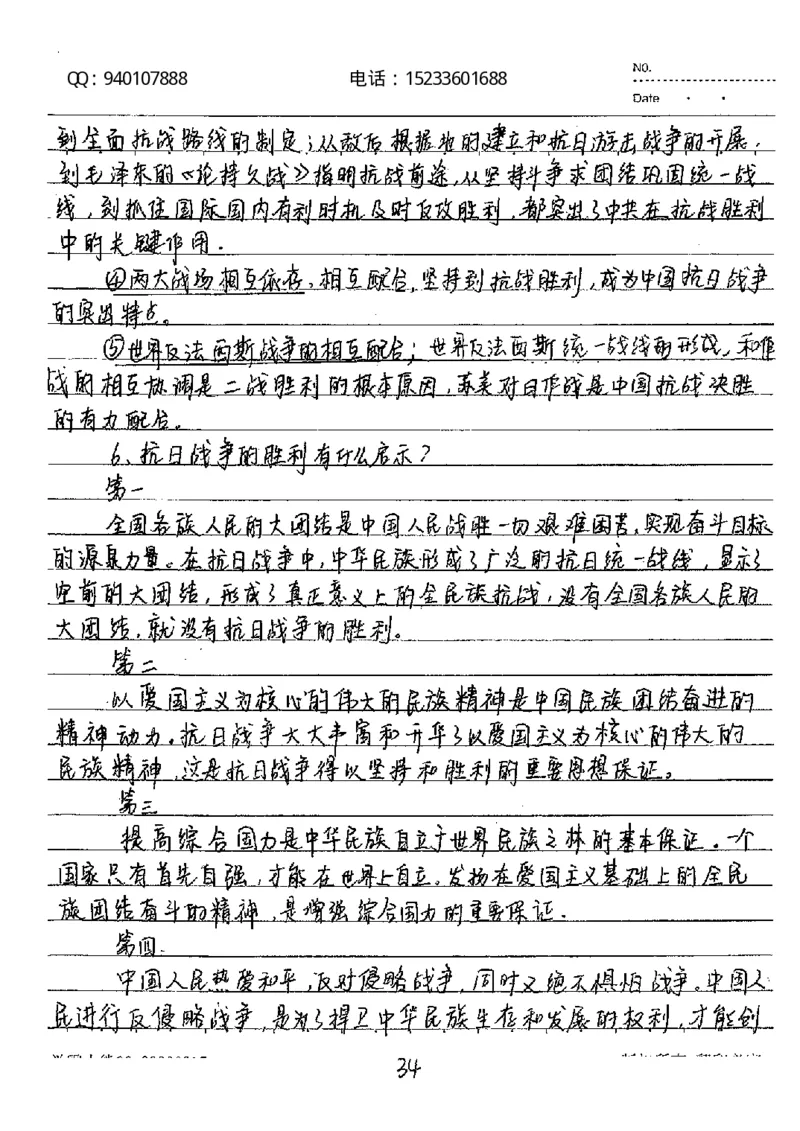 QQ：940107888 电话：15233601688
NO.
Date
到全面抗战路线的制定；从敌后根据地的建立和抗日游击战争的开展，
到毛泽东的《论持久战》指明抗战前途，从坚持斗争求团结巩固统一战
线，到抓住国际国内有利时机及时反攻胜利，都突出了中共在抗战胜利
中的关键作用．
④两大战场相互依存，相互配合，坚持到抗战胜利，成为中国抗日战争
的突出特点。
⑤世界反法西斯战争的相互配合；世界反法西斯统一战线的形成，和作
战的相互协调是二战胜利的根本原因，苏美对日作战是中国抗战决胜
的有力配合。
6、抗日战争的胜利有什么启示？
第一
全国各族人民的大团结是中国人民战胜一切艰难困苦，实现奋斗目标
的源泉力量。在抗日战争中，中华民族形成了广泛的抗日统一战线，显示了
空前的大团结，形成了真正意义上的全民族抗战，没有全国各族人民的
大团结，就没有抗日战争的胜利。
第二
以爱国主义为核心的伟大的民族精神是中国民族团结奋进的
精神动力。抗日战争大大丰富和升华了以爱国主义为核心的伟大的
民族精神，这是抗日战争得以坚持和胜利的重要思想保证。
第三
提高综合国力是中华民族自立于世界民族之林的基本保证。一个
国家只有首先自强，才能在世界上自立。发扬在爱国主义基础上的全民
族团结奋斗的精神，是增强综合国力的重要保证．
第四．
中国人民热爱和平，反对侵略战争，同时又绝不惧怕战争。中国人
民进行反侵略战争，是为了捍卫中华民族生存和发展的权利，才能创
34